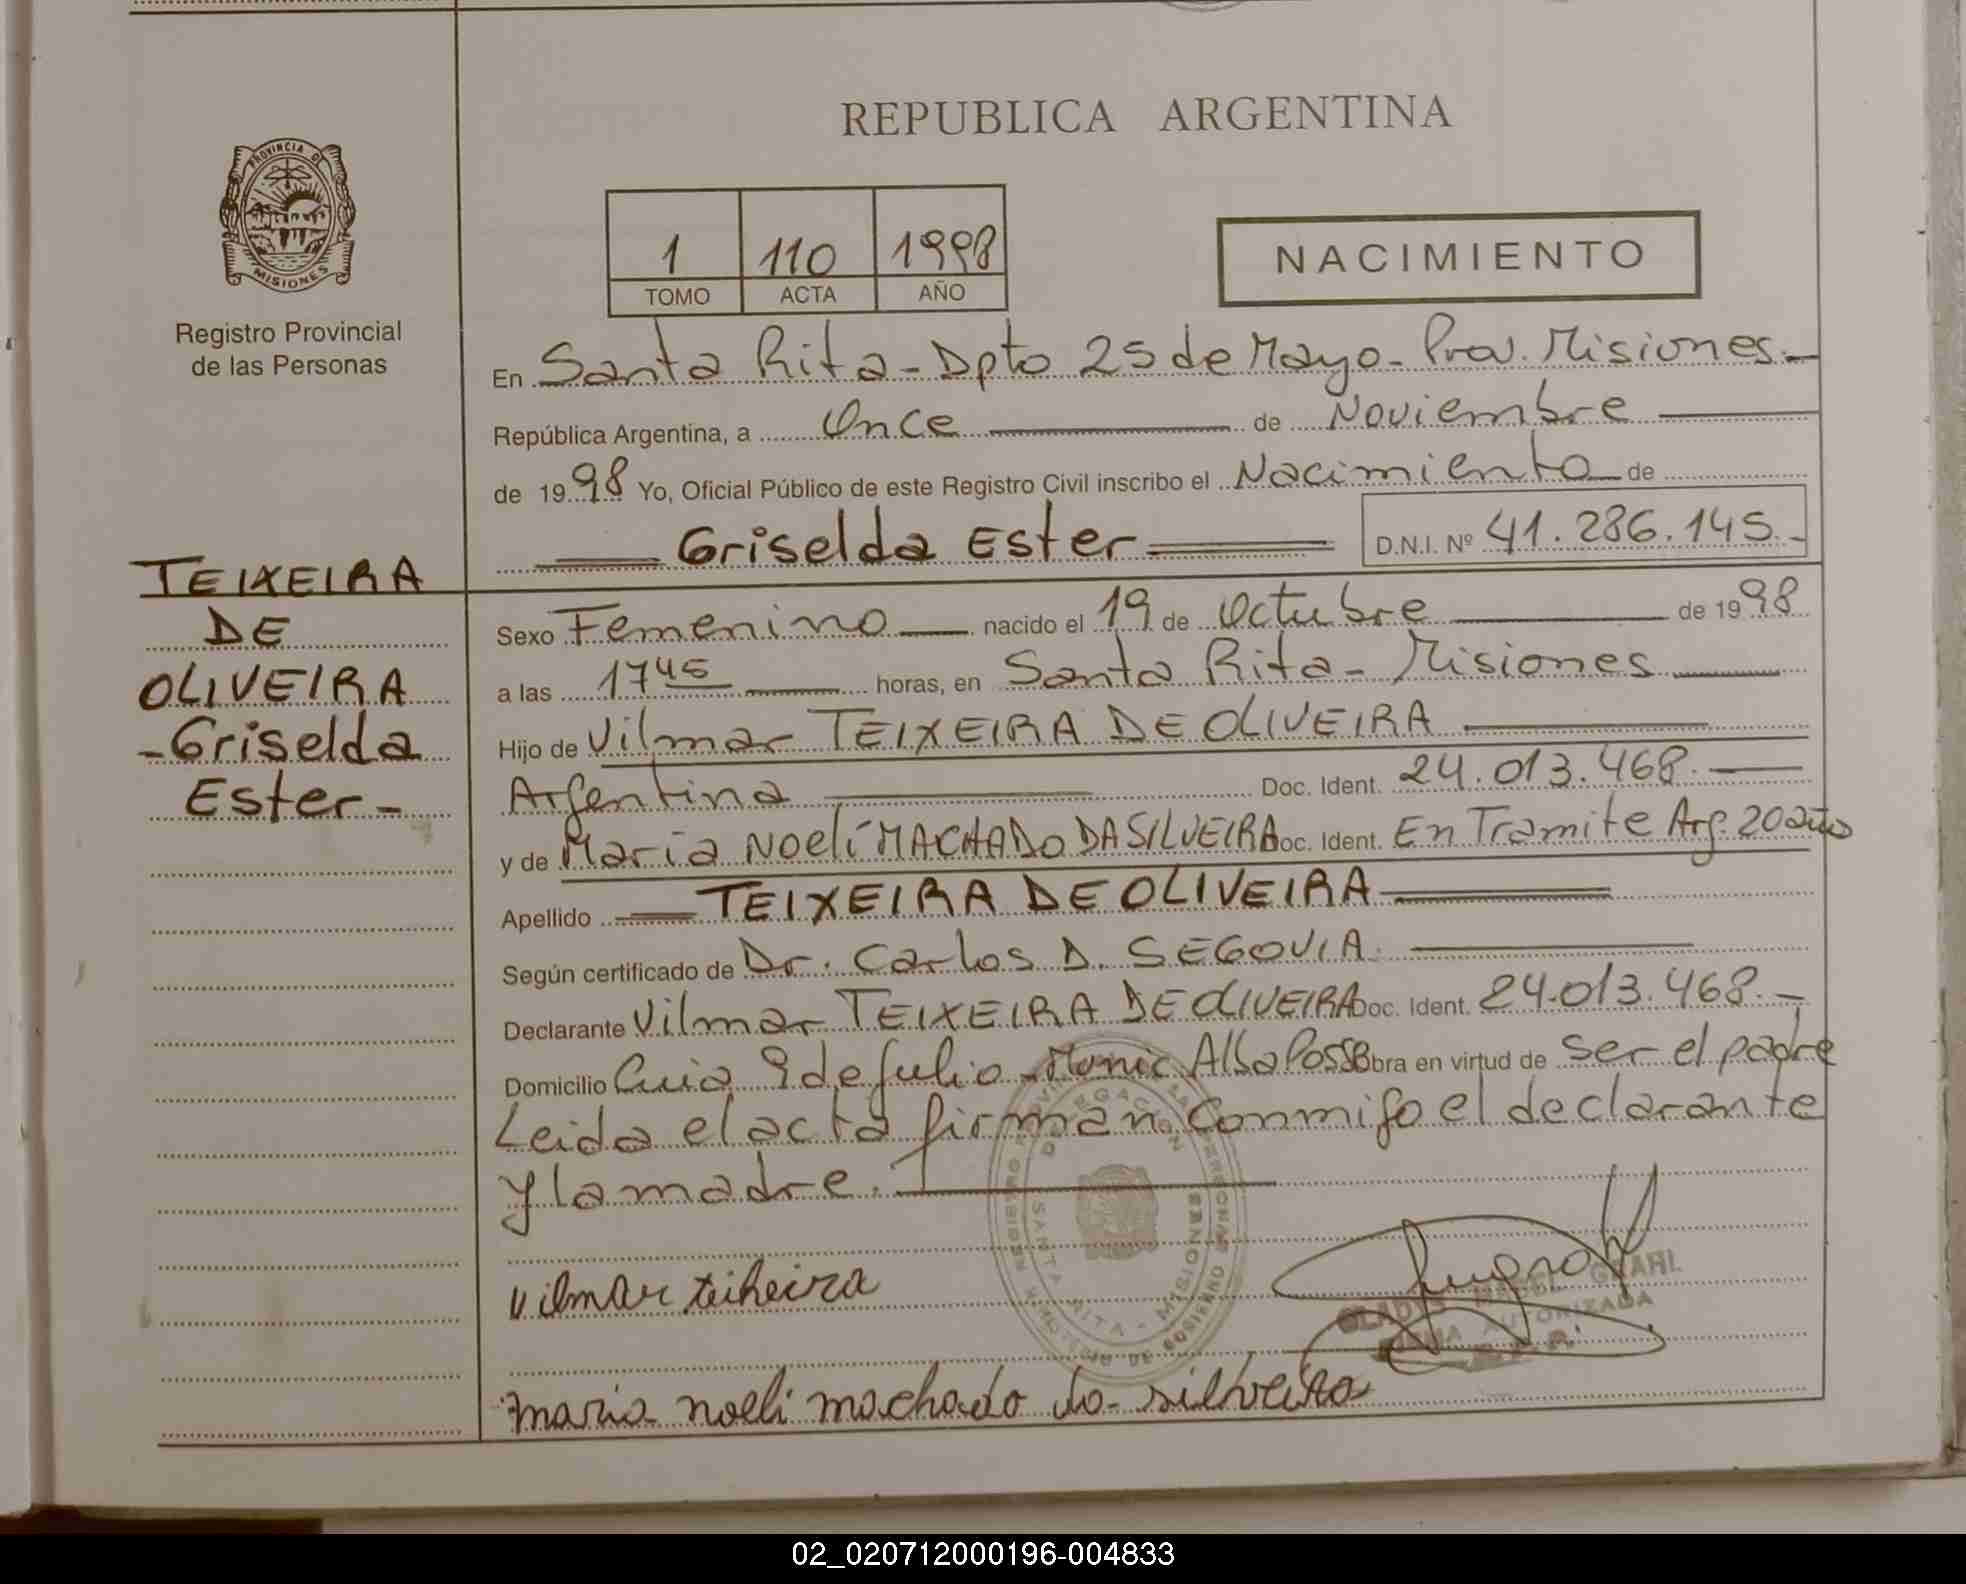 REPUBLICA ARGENTINA
PROVINCIA DE
MISIONES
Registro Provincial
de las Personas
1 110 1998
TOMO ACTA AÑO
NACIMIENTO
En Santa Rita - Dpto 25 de Mayo - Prov. Misiones.-
República Argentina, a Once de Noviembre
de 1998 Yo, Oficial Público de este Registro Civil inscribo el Nacimiento de
Griselda Ester D.N.I. Nº 41.286.145.-
TEIXEIRA
DE
OLIVEIRA
-Griselda
Ester-
Sexo Femenino nacido el 19 de Octubre de 1998
a las 17 45 horas, en Santa Rita - Misiones
Hijo de Vilmar TEIXEIRA DE OLIVEIRA
Argentina Doc. Ident. 24.013.468.
y de Maria Noelí MACHADO DA SILVEIRA Doc. Ident. En Tramite Arg. 20 años
Apellido TEIXEIRA DE OLIVEIRA
Según certificado de Dr. Carlos D. SEGOVIA.
Declarante Vilmar TEIXEIRA DE OLIVEIRA Doc. Ident. 24.013.468.-
Domicilio 9 de Julio - Alba Posse Obra en virtud de ser el padre
Leida el acta firman conmigo el declarante
y la madre.
DELEGACION
SANTA RITA - MISIONES
MINISTERIO DE GOBIERNO
vilmar teiheira
GLADYS MABEL
FIRMA AUTORIZADA
maria noeli machado da silveira
02_020712000196-004833